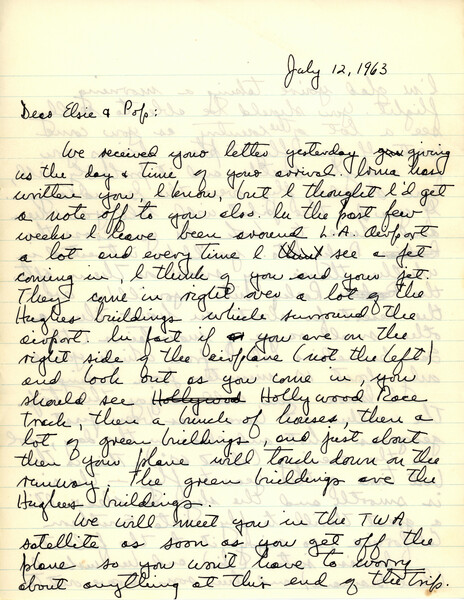 July 12, 1963
Dear Elsie & Pop:
We received your letter yesterday giving
us the day & time of your arrival. Irma has
written you, I know, but I thought I'd get
a note off to you also. In the past few
weeks I have been around L.A. airport
a lot and every time I see a jet
coming in, I think of you and your jet.
They come in right over a lot of the
Hughes buildings which surround the
airport. In fact if you are on the
right side of the airplane (not the left)
and look out as you come in, you
should see Hollywood Hollywood Race
track, then a bunch of houses, then a
lot of green buildings, and just about
then your plane will touch down on the
runway. The green buildings are the
Hughes buildings.
We will meet you in the TWA
satellite as soon as you get off the
plane so you won't have to worry
about anything at this end of the trip.